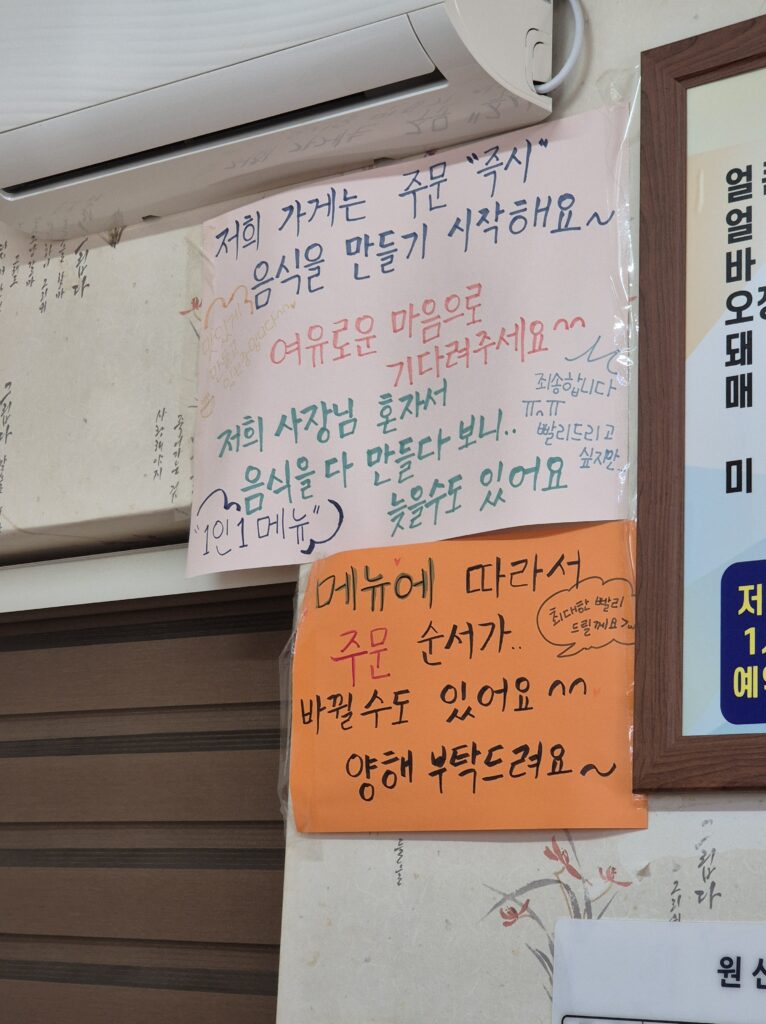 저희 가게는 주문 "즉시"
음식을 만들기 시작해요~
여유로운 마음으로
기다려주세요^^
저희 사장님 혼자서
음식을 다 만들다 보니..
늦을수도 있어요
죄송합니다
ㅠ^ㅠ
빨리드리고
싶지만..
"1인 1메뉴"
메뉴에 따라서
주문 순서가..
바뀔수도 있어요^^
양해 부탁드려요~
최대한 빨리
드릴께요
얼얼바오돼매 미
저
1
예
원 산
립다